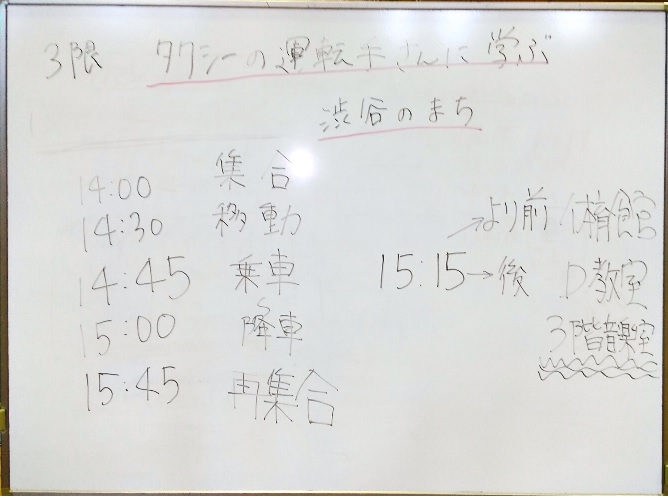 3限 タクシーの運転手さんに学ぶ
渋谷のまち
14:00 集合
14:30 移動
14:45 乗車
15:00 降車
15:45 再集合
→より前 体育館
15:15→後 D教室
3階音楽室